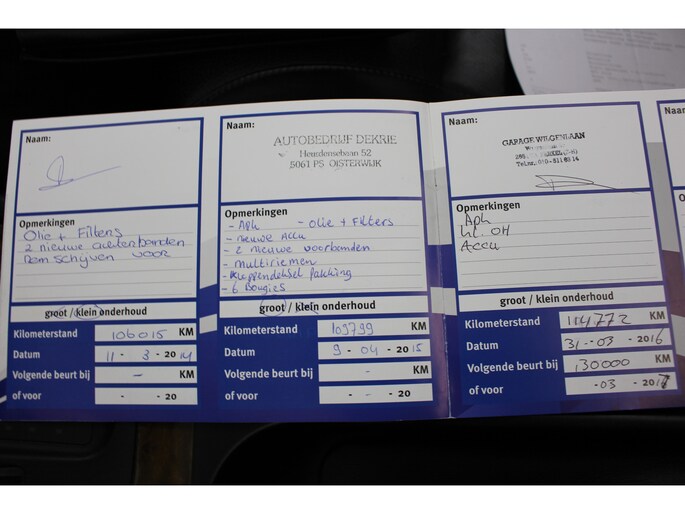 Naam:
Opmerkingen
Olie + Filters
2 nieuwe achterbanden
Remschijven voor
groot / klein onderhoud
Kilometerstand 106015 KM
Datum 11 - 3 - 2014
Volgende beurt bij - KM
of voor - - 20
Naam:
AUTOBEDRIJF DEKRIE
Heusdensebaan 52
5061 PS OISTERWIJK
Opmerkingen
- APK - Olie + Filters
- nieuwe Accu
- 2 nieuwe voorbanden
- Multiriemen
- Kleppendeksel pakking
- 6 Bougies
groot / klein onderhoud
Kilometerstand 109799 KM
Datum 9 - 04 - 2015
Volgende beurt bij - KM
of voor - - 20
Naam:
GARAGE WILGENLAAN
Opmerkingen
Apk
kl. OH
Accu
groot / klein onderhoud
Kilometerstand 114772 KM
Datum 31 - 03 - 2016
Volgende beurt bij 130000 KM
of voor -03 - 2017
Naa
Opn
Kil
Da
Vo
of